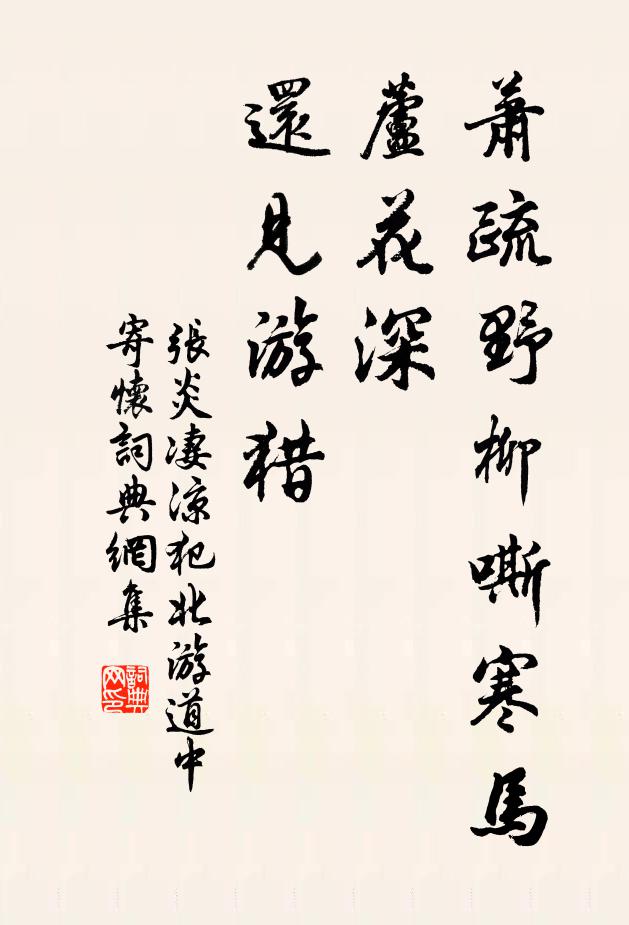 蕭疏野柳嘶寒馬
蘆花深
還見游猎
張炎淒涼犯北游道中
寄懷詞典網集
詞典
网印